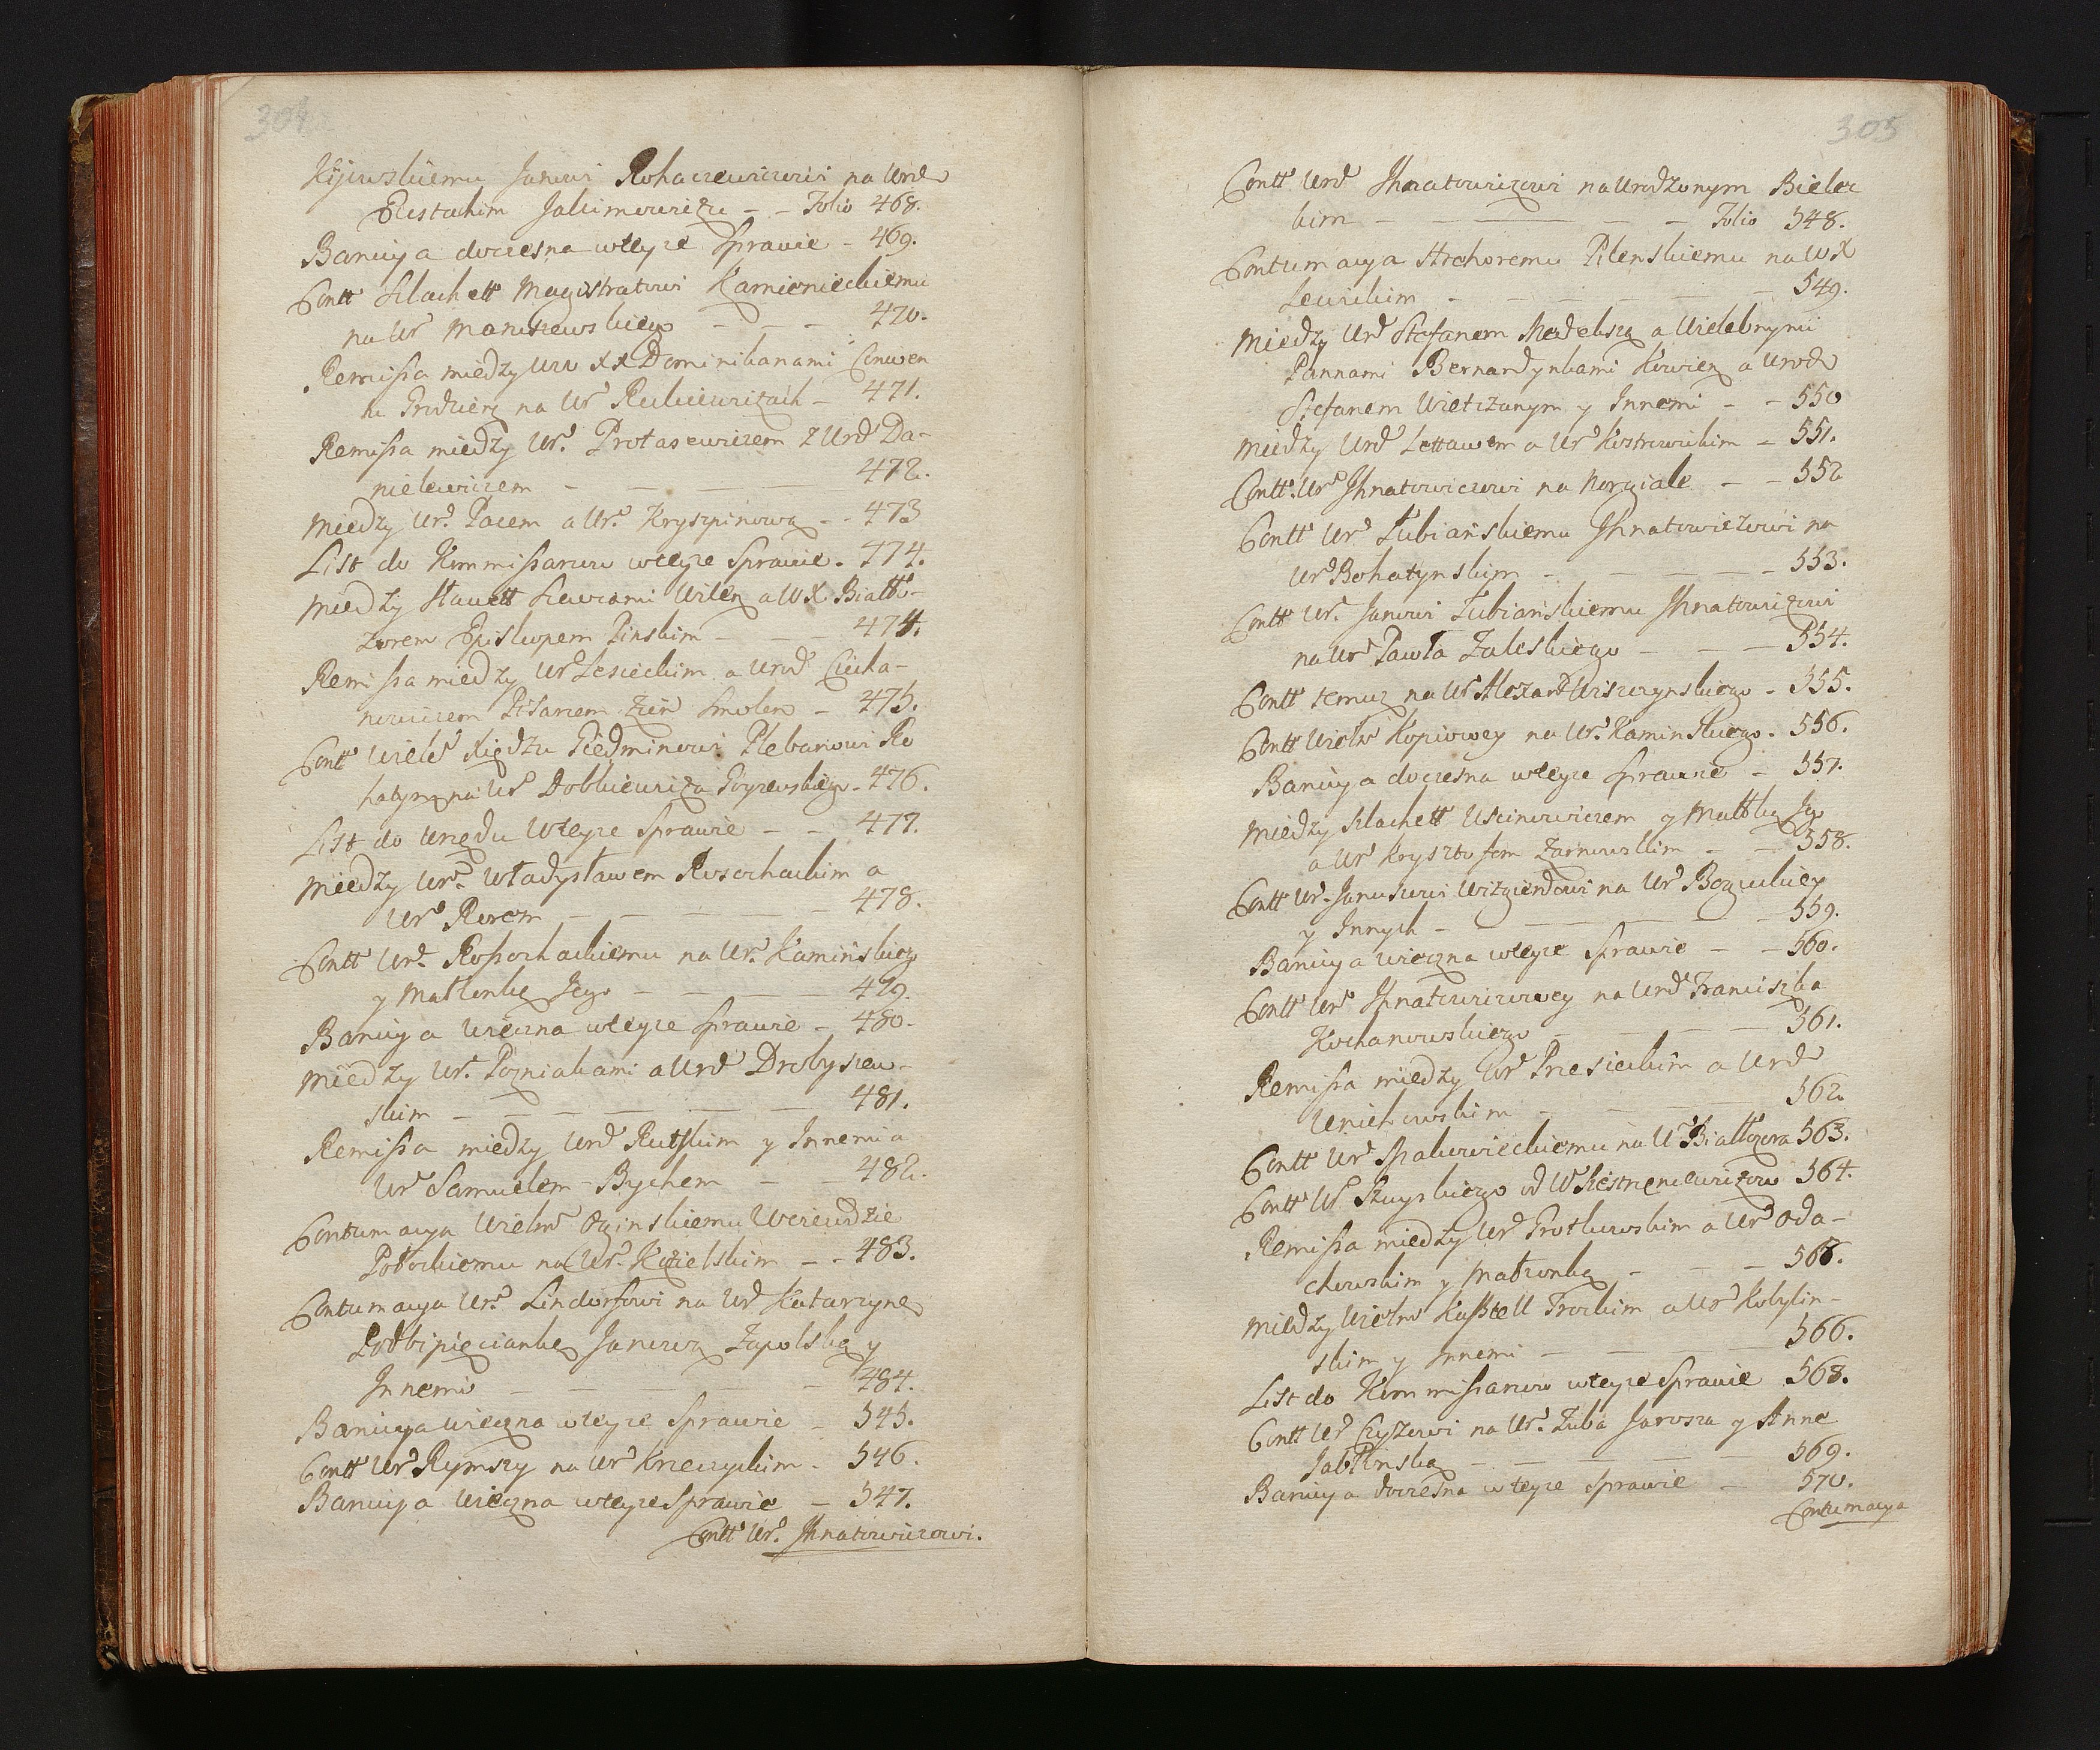 304
Kijewskiemu Janowi Rohaczewiczowi na Urod
Eustachim Jakimowiczu - - Folio 468.
Banicya doczesna wteyże Sprawie - 469.
Contt Szlachett Magistratowi Kamienieckiemu
na Ur Maniszewskiego - - - 470.
Remissa między Ww XX Dominikanami Conwen
tu Grodzien na Ur Rukiewiczach - 471.
Remissa między Ur. Protasewiczem z Urd Da-
nielewiczem - - - 472.
Między Ur. Pacem a Ur. Kryszpinową - - 473
List do Kommissarzow wteyże Sprawie - 474.
Między Sławett Szewcami Wilen a WX Białło-
zorem Episkopem Pinskim - - 474.
Remissa między Ur Lesieckim a Urod Ciecha-
nowiczem Pisarzem Ziem Smolen - 475.
Contt Wieleb Xiędzu Giedminowi Plebanowi Ro
hatyn na Ur Dobkiewicza Gryzewskiego - 476.
List do Urzędu Wteyże Sprawie - - 477.
Między Ur. Władysławem Rosochackim a
Ur - - - - 478.
Contt Ur. Rossochackiemu na Ur. Kamińskiego
y Małżonkę Jego - - - 479.
Banicya Wieczna wteyże Sprawie - 480.
Między Ur. Pozniakami a Urd Drobyszew-
skim - - - - - 481.
Remissa między Urd Rutskim y Innemi a
Ur Samuelem Bychem - - 482.
Contumacya Wielm Oginskiemu Woiewodzie
Połockiemu na Ur. Kozielskim - - 483.
Contumacya Ur. Lindorfowi na Urd Katarzynę
Podbipięciankę Janową Zapolską y
Innemi - - - - 484.
Banicya wieczna wteyże Sprawie - 545.
Contt Ur Rymszy na Ur Knieczyckim - 546.
Banicya Wieczna wteyże Sprawie - 547.
Contt Ur. Ihnatowiczowi.
305
Contt Urd Ihnatowiczowi na Urodzonym Bielec
kim - - - Folio 548.
Contumacya Pilenskiemu na WX
Lewickim - - - - - 549.
Między Urd Stefanem Medekszą a Wielebnymi
Pannami Bernardynkami Kowien a Urod
Stefanem Wietrzanym y Innemi - - 550
Między Urd Lettawem a Ur Kostrowickim - 551.
Contt. Ur Ihnatowiczowi na Norgiale - - 552
Contt Ur Łubiańskiemu Ihnatowiczowi na
Ur Bohatynskim - - - 553.
Contt Ur. Janowi Łubiańskiemu Ihnatowiczowi
na Ur Pawła Zaleskiego - - - 554.
Contt temuz na Ur Alexand Wiszczynskiego - 555.
Contt Wielm Kopciowey na Ur. Kaminskiego - 556.
Banicya doczesna wteyże Sprawie - 557.
Między Szlachett Uscinowiczem y Małżką Je
a Ur Krysztofem Żarnowskim - - 558.
Contt Ur. Januszowi Wizgierdowi na Ur Boguckiey
y Innych - - - - 559.
Banicya wieczna wteyże Sprawie - - 560.
Contt Ur Ihnatowiczowey na Urd Franciszka
Kochanowskiego - - - 561.
Remissa między Ur Przesieckim a Urd
Uniechowskim - - - 562.
Contt Ur Spakowieckiemu na Ur Białłozora 563.
Contt Ur od W Kiestrzeniewiczow 564.
Remissa między Ur Protkowskim a Ur Oda-
chowskim y Małżonką - - - 565.
Między Wielm Kasztell Trockim a Ur Kobylin-
skim y Innemi - - - 566.
List do Kommissarzow wteyże Sprawie 568.
Contt Ur Czyżowi na Ur. Zuba Jarosza y Anne
Jabłonską - - - - 569.
Banicya doczesna wteyże Sprawie - 570.
Contumacya